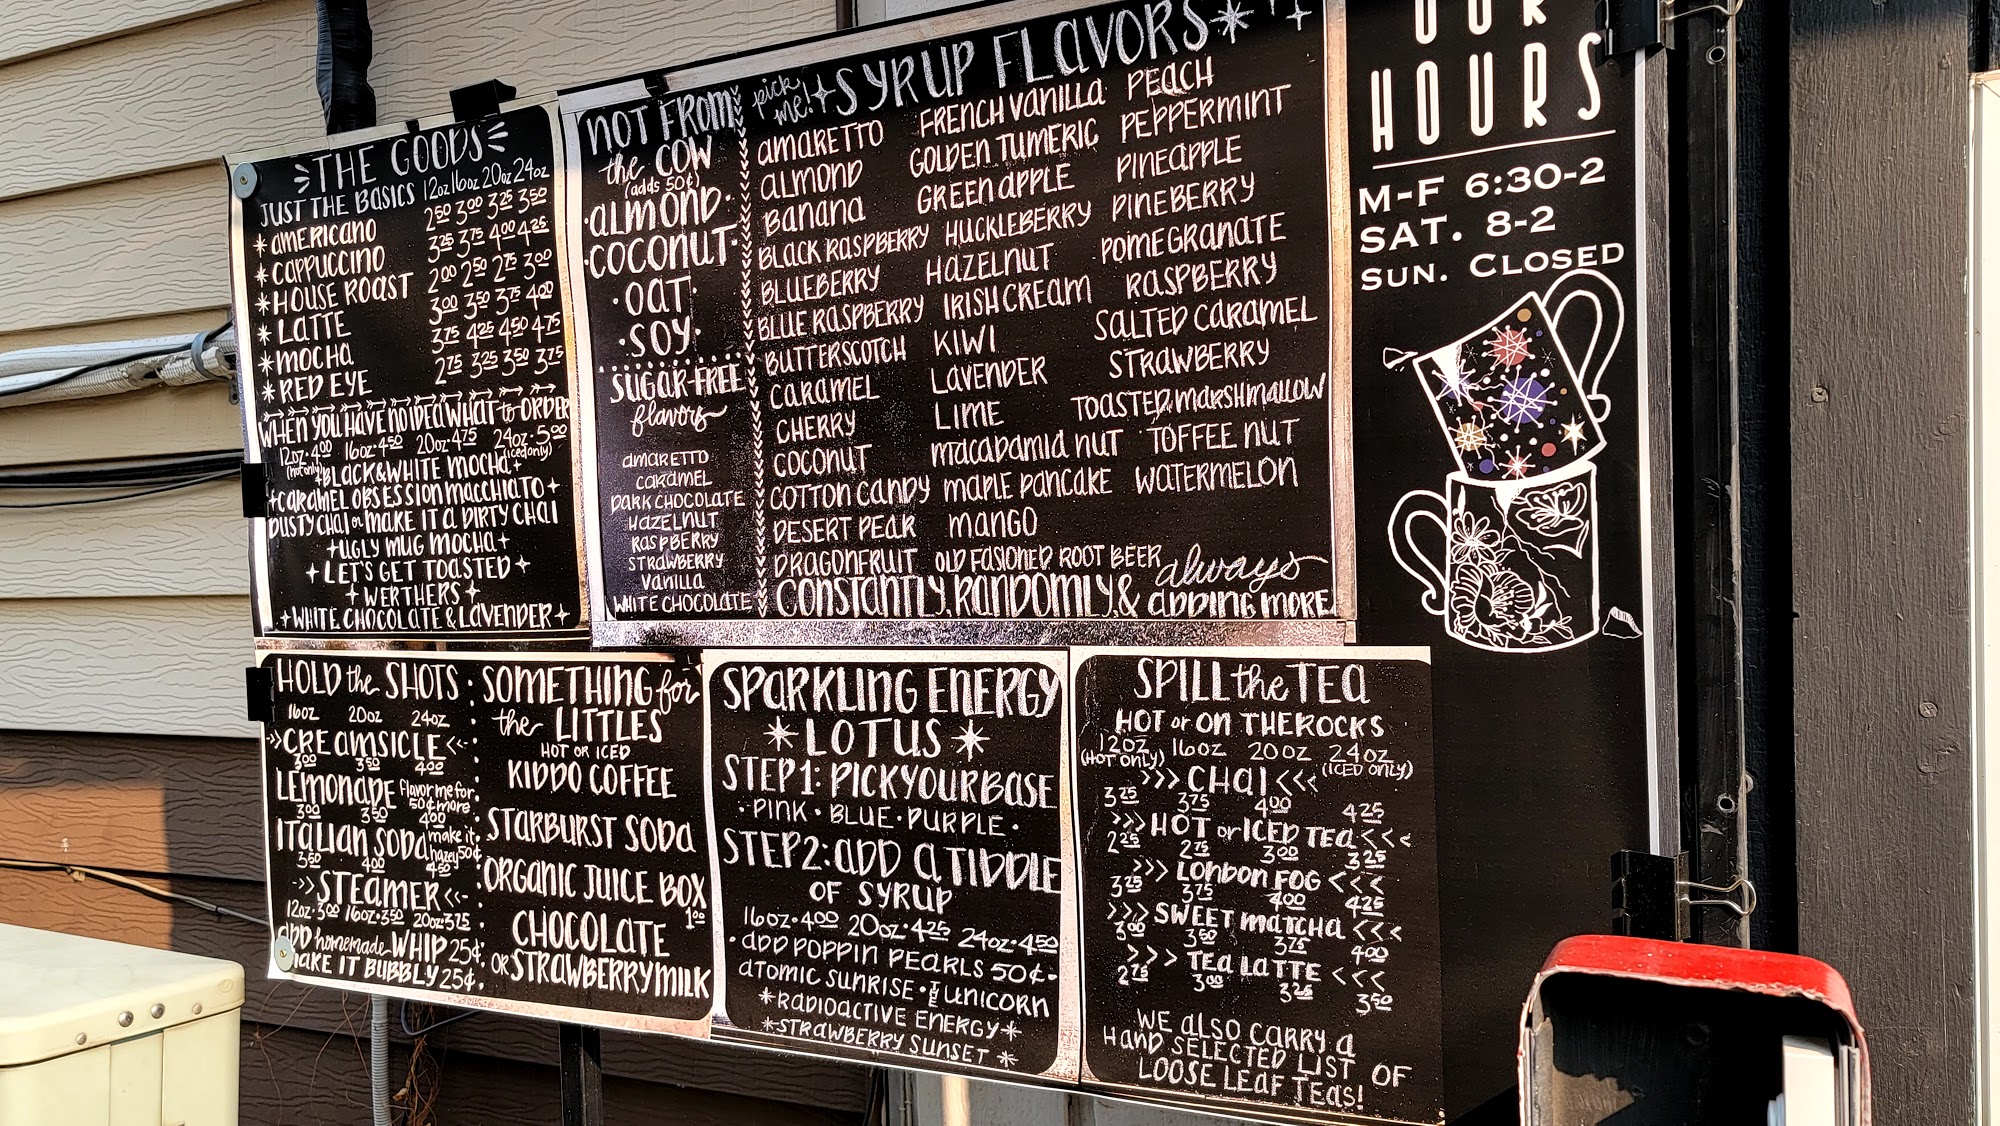 THE GOODS
JUST THE BASICS 12oz 16oz 20oz 24oz
* AMERICANO 2.50 3.00 3.25 3.50
* CAPPUCCINO 3.25 3.75 4.00 4.25
* HOUSE ROAST 2.00 2.50 2.75 3.00
* LATTE 3.00 3.50 3.75 4.00
* MOCHA 3.75 4.25 4.50 4.75
* RED EYE 2.75 3.25 3.50 3.75
WHEN YOU HAVE NO IDEA WHAT to ORDER
12oz·4.00 16oz·4.50 20oz·4.75 24oz·5.00
(hot only) (iced only)
BLACK & WHITE MOCHA
CARAMEL OBSESSION MACCHIATO
DUSTY CHAI or MAKE IT A DIRTY CHAI
UGLY MUG MOCHA
LET'S GET TOASTED
WERTHERS
WHITE CHOCOLATE & LAVENDER
NOT FROM
the COW
(adds 50¢)
·ALMOND·
·COCONUT·
·OAT·
·SOY·
SUGAR-FREE
flavors
AMARETTO
CARAMEL
DARK CHOCOLATE
HAZELNUT
RASPBERRY
STRAWBERRY
VANILLA
WHITE CHOCOLATE
pick me! SYRUP FLAVORS
AMARETTO
ALMOND
BANANA
BLACK RASPBERRY
BLUEBERRY
BLUE RASPBERRY
BUTTERSCOTCH
CARAMEL
CHERRY
COCONUT
COTTON CANDY
DESERT PEAR
DRAGONFRUIT
FRENCH VANILLA
GOLDEN TUMERIC
GREEN APPLE
HUCKLEBERRY
HAZELNUT
IRISH CREAM
KIWI
LAVENDER
LIME
MACADAMIA NUT
MAPLE PANCAKE
MANGO
OLD FASIONED ROOT BEER
PEACH
PEPPERMINT
PINEAPPLE
PINEBERRY
POMEGRANATE
RASPBERRY
SALTED CARAMEL
STRAWBERRY
TOASTED MARSHMALLOW
TOFFEE NUT
WATERMELON
CONSTANTLY, RANDOMLY, & always ADDING MORE
OUR
HOURS
M-F 6:30-2
SAT. 8-2
SUN. CLOSED
HOLD the SHOTS
16oz 20oz 24oz
CREAMSICLE
3.00 3.50 4.00
LEMONADE flavor me for 50¢ more
3.00 3.50 4.00
ITALIAN SODA make it hazey 50¢
3.50 4.00 4.50
STEAMER
12oz·3.00 16oz·3.50 20oz·3.75
ADD homemade WHIP 25¢
MAKE IT BUBBLY 25¢
SOMETHING for
the LITTLES
HOT OR ICED
KIDDO COFFEE
STARBURST SODA
ORGANIC JUICE BOX
1.00
CHOCOLATE
OR STRAWBERRY MILK
SPARKLING ENERGY
* LOTUS *
STEP 1: PICK YOUR BASE
· PINK · BLUE · PURPLE ·
STEP 2: ADD A TIDDLE
OF SYRUP
16oz·4.00 20oz·4.25 24oz·4.50
·ADD POPPIN PEARLS 50¢·
ATOMIC SUNRISE · THE UNICORN
*RADIOACTIVE ENERGY*
*STRAWBERRY SUNSET *
SPILL the TEA
HOT or ON THE ROCKS
12OZ 16OZ 20OZ 24OZ
(HOT ONLY) (ICED ONLY)
>>> CHAI <<<
3.25 3.75 4.00 4.25
>>> HOT or ICED TEA <<<
2.25 2.75 3.00 3.25
>>> LONDON FOG <<<
3.25 3.75 4.00 4.25
>>> SWEET MATCHA <<<
3.00 3.50 3.75 4.00
>>> TEA LATTE <<<
2.75 3.00 3.25 3.50
WE ALSO CARRY A
HAND SELECTED LIST OF
LOOSE LEAF TEAS!